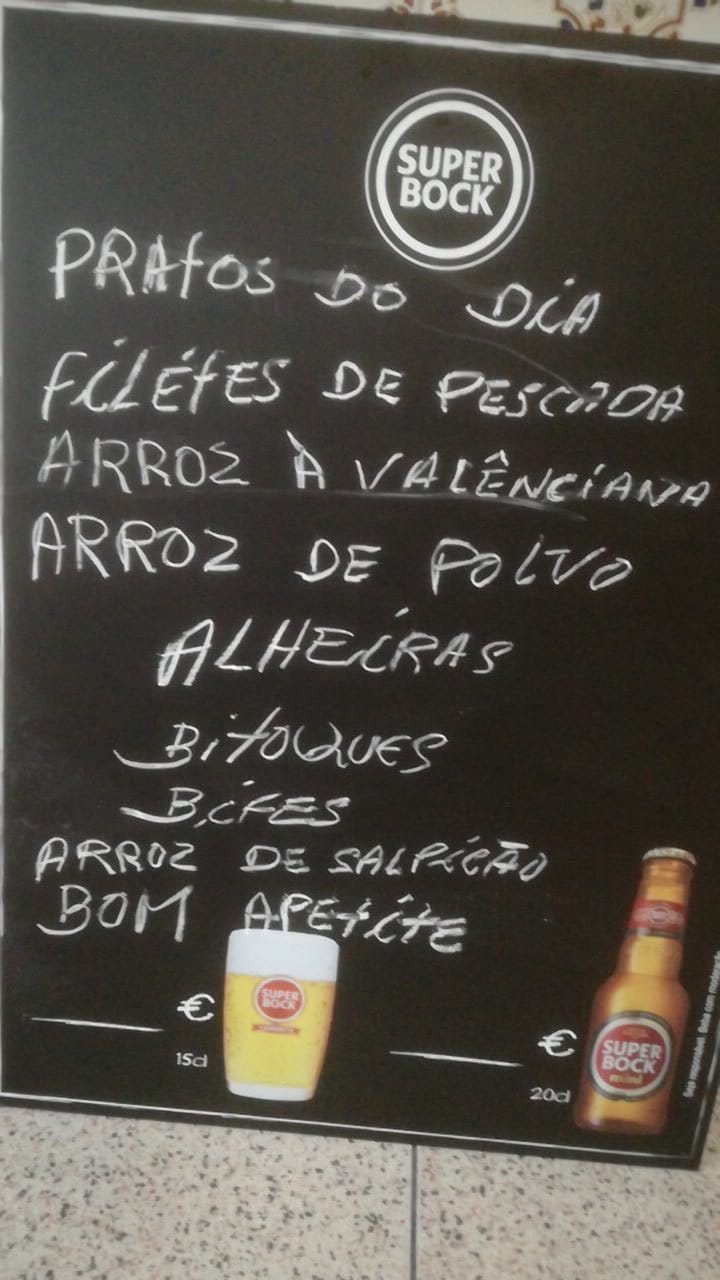 SUPER
BOCK
PRATOS DO DIA
FILÉTES DE PESCADA
ARROZ À VALÊNCIANA
ARROZ DE POLVO
ALHEIRAS
BITOQUES
BIFES
ARROZ DE SALPICÃO
BOM APETITE
SUPER
BOCK
€
15cl
SUPER
BOCK
mini
€
20cl
Seja responsável. Beba com moderação.